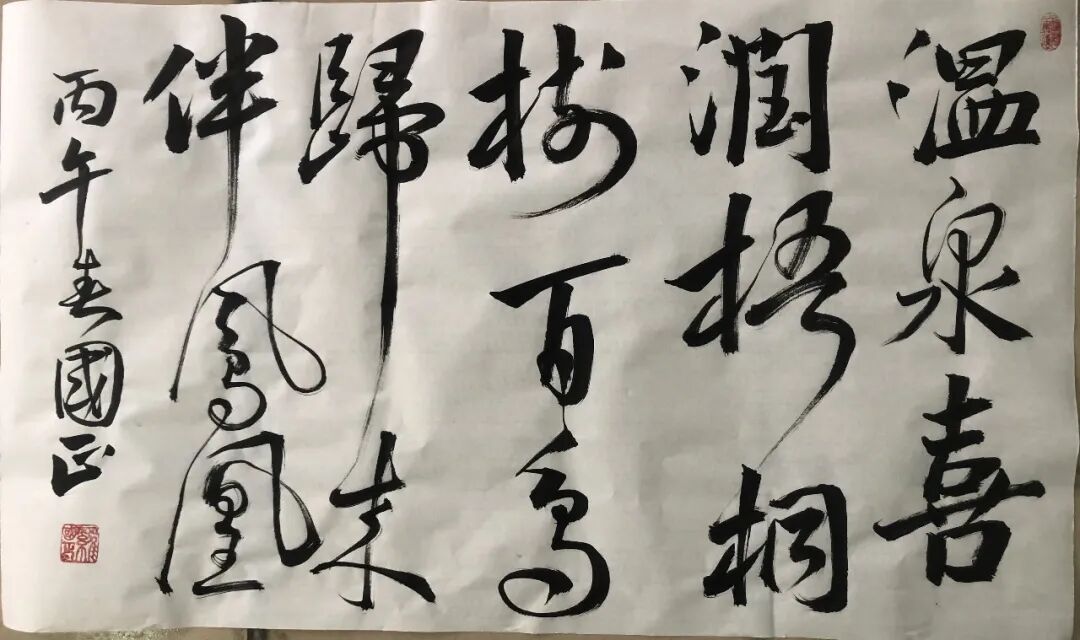 温泉喜
潤梧桐
樹百鳥
歸来
伴鳳凰
丙午春國正